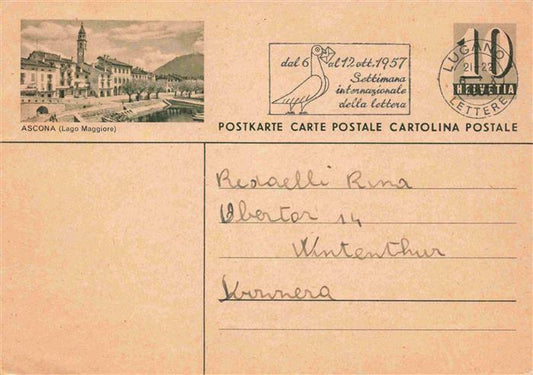 dal 6 al 12 ott. 1957
Settimana
internazionale
della lettera
LUGANO
LETTERE
10
HELVETIA
ASCONA (Lago Maggiore)
POSTKARTE CARTE POSTALE CARTOLINA POSTALE
Redaelli Rina
Obertor 14
Wintenthur
Svizzera